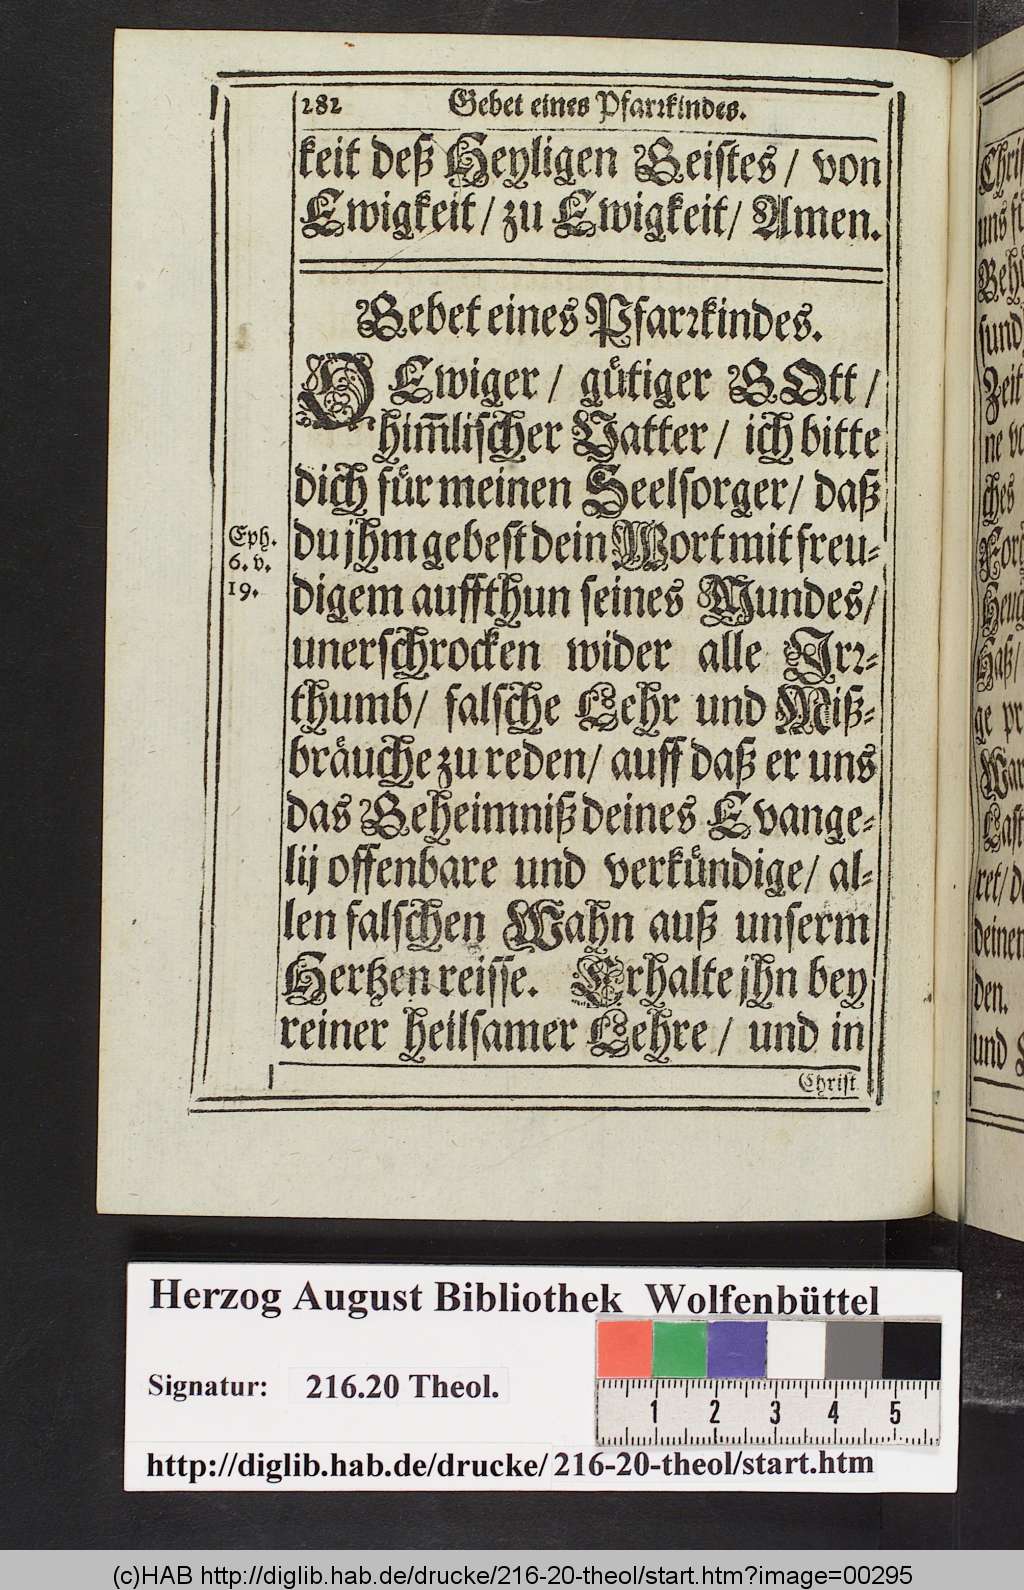 282 Gebet eines Pfarꝛkindes.
keit deß Heyligen Geistes / von
Ewigkeit / zu Ewigkeit / Amen.
Gebet eines Pfarꝛkindes.
O Ewiger / gütiger GOtt /
him̃lischer Vatter / ich bitte
dich für meinen Seelsorger / daß
du jhm gebest dein Wort mit freu-
digem auffthun seines Mundes /
unerschrocken wider alle Irꝛ-
thumb / falsche Lehr und Miß-
bräuche zu reden / auff daß er uns
das Geheimniß deines Evange-
lij offenbare und verkündige / al-
len falschen Wahn auß unserm
Hertzen reisse. Erhalte jhn bey
reiner heilsamer Lehre / und in
Christ
Eph.
6. v.
19.
Chris
uns fü
Behü
sund
Zeit
ne vo
ches
Hass /
ge pr
War
Last
ret / d
deinen
den.
und
Herzog August Bibliothek Wolfenbüttel
Signatur: 216.20 Theol.
1 2 3 4 5
http://diglib.hab.de/drucke/216-20-theol/start.htm
(c)HAB http://diglib.hab.de/drucke/216-20-theol/start.htm?image=00295